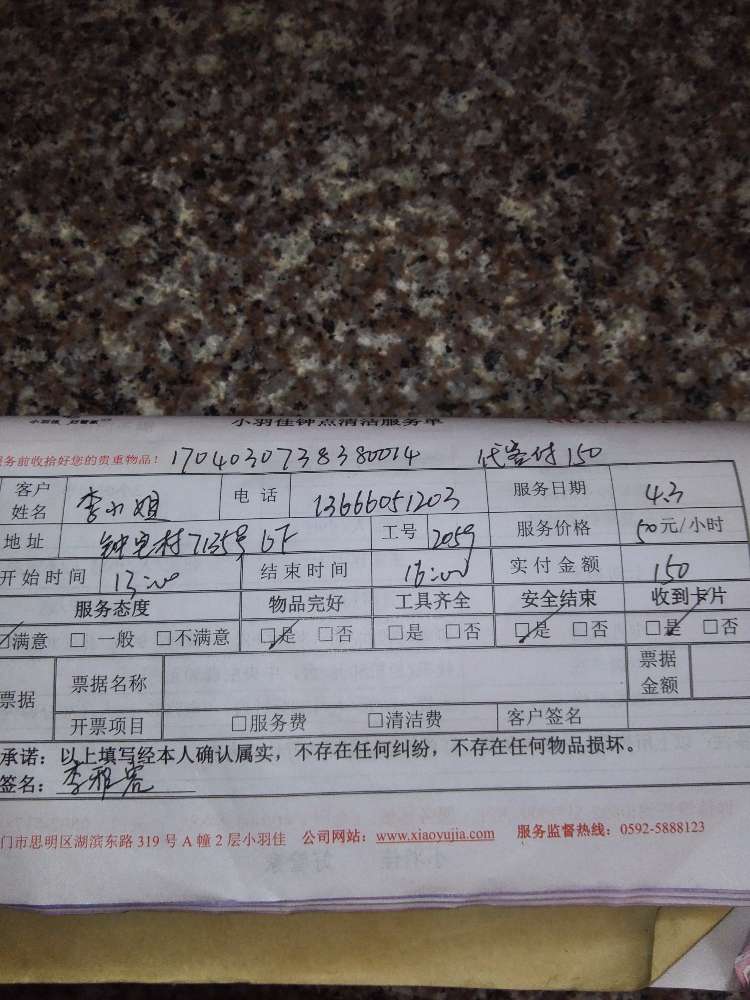 小羽佳钟点清洁服务单
服务前收拾好您的贵重物品! 1704030738380014 代客付150
客户姓名 李小姐 电话 13666051203 服务日期 4.3
地址 钟宅村7135号 6F 工号 2059 服务价格 50元/小时
开始时间 13:00 结束时间 16:00 实付金额 150
服务态度 物品完好 工具齐全 安全结束 收到卡片
☑满意 □ 一般 □不满意 ☑是 □否 □是 □否 ☑是 □否 ☑是 □否
票据 票据名称 票据金额
开票项目 □服务费 □清洁费 客户签名
承诺：以上填写经本人确认属实，不存在任何纠纷，不存在任何物品损坏。
签名：李雅容
门市思明区湖滨东路 319 号 A 幢 2 层小羽佳 公司网站：www.xiaoyujia.com 服务监督热线：0592-5888123